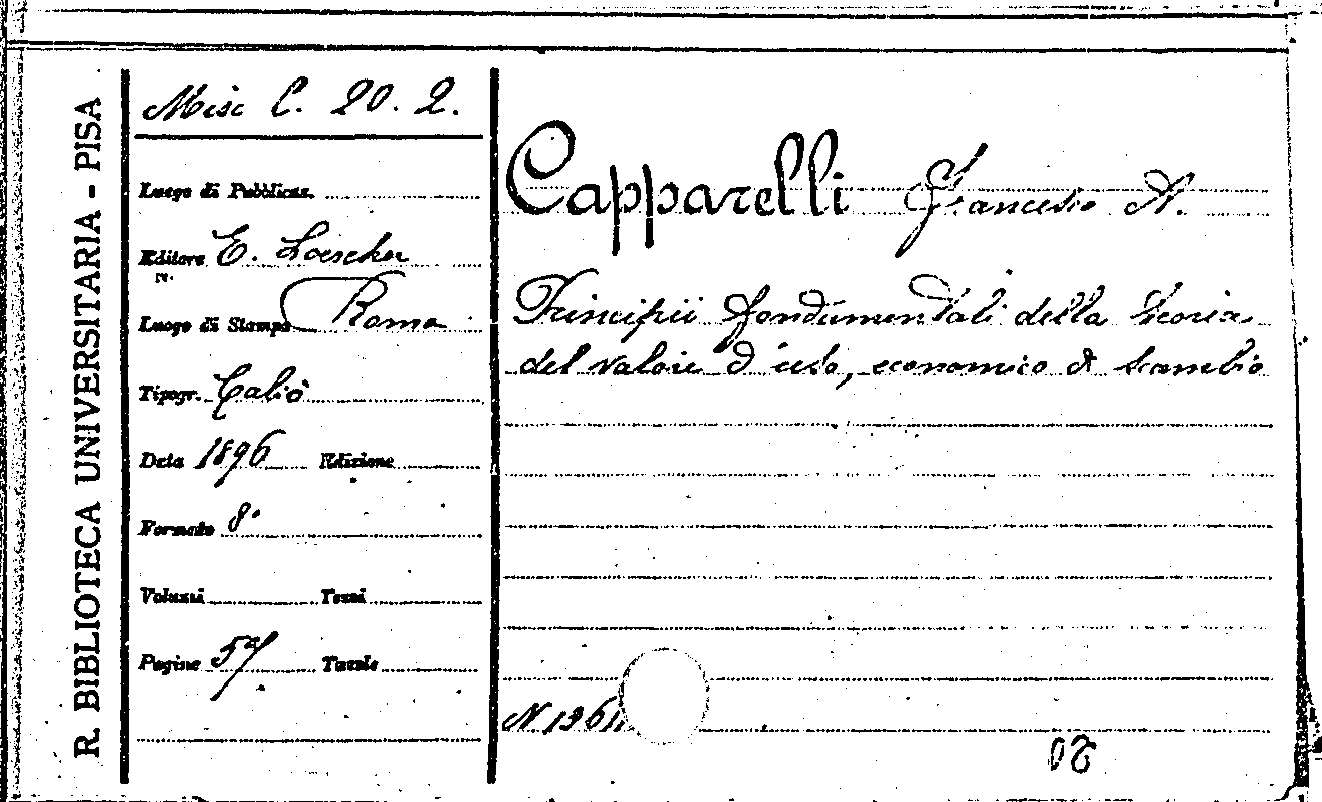 R. BIBLIOTECA UNIVERSITARIA - PISA
Misc C. 20. 2.
Luogo di Pubblicaz.
Editore E. Loescher
Luogo di Stampa Roma
Tipogr. Caliò
Data 1896 Edizione
Formato 8°
Volumi Tomi
Pagine 57 Tavole
Capparelli Francesco A.
Principii fondamentali della teoria
del valore d'uso, economico di scambio
N.